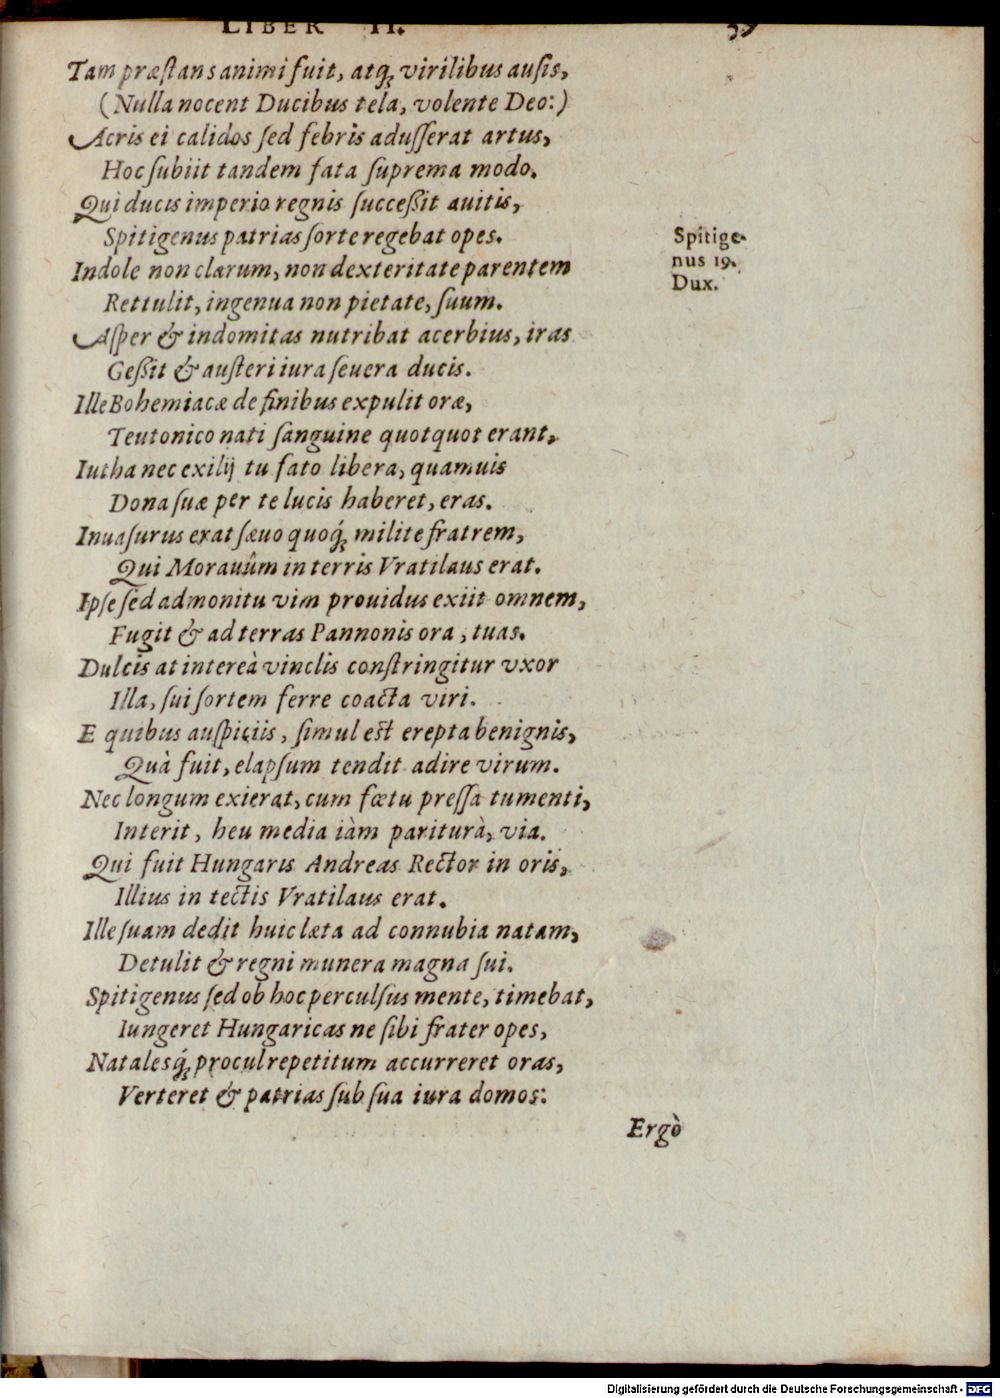 LIBER II. 59
Tam præſtans animi fuit, atq́; virilibus auſis,
(Nulla nocent Ducibus tela, volente Deo:)
Acris ei calidos ſed febris aduſſerat artus,
Hoc ſubiit tandem fata ſuprema modo.
Qui ducis imperio regnis ſucceßit auitis,
Spitigenus patrias ſorte regebat opes.
Spitige-
nus 19.
Dux.
Indole non clarum, non dexteritate parentem
Rettulit, ingenua non pietate, ſuum.
Aſper & indomitas nutribat acerbius, iras
Geßit & auſteri iura ſeuera ducis.
Ille Bohemiacæ de finibus expulit oræ,
Teutonico nati ſanguine quotquot erant.
Iutha nec exilij tu fato libera, quamuis
Dona ſuæ per te lucis haberet, eras.
Inuaſurus erat ſæuo quoq́; milite fratrem,
Qui Morauûm in terris Vratilaus erat.
Ipſe ſed admonitu vim prouidus exiit omnem,
Fugit & ad terras Pannonis ora, tuas.
Dulcis at intereà vinclis conſtringitur vxor
Illa, ſui ſortem ferre coacta viri.
E quibus auſpiciis, ſimul eſt erepta benignis,
Quà fuit, elapſum tendit adire virum.
Nec longum exierat, cum fœtu preſſa tumenti,
Interit, heu media iàm pariturà, via.
Qui fuit Hungaris Andreas Rector in oris,
Illius in tectis Vratilaus erat.
Ille ſuam dedit huic læta ad connubia natam,
Detulit & regni munera magna ſui.
Spitigenus ſed ob hoc perculſus mente, timebat,
Iungeret Hungaricas ne ſibi frater opes,
Natalesq́; procul repetitum accurreret oras,
Verteret & patrias ſub ſua iura domos:
Ergò
Digitalisierung gefördert durch die Deutsche Forschungsgemeinschaft - DFG